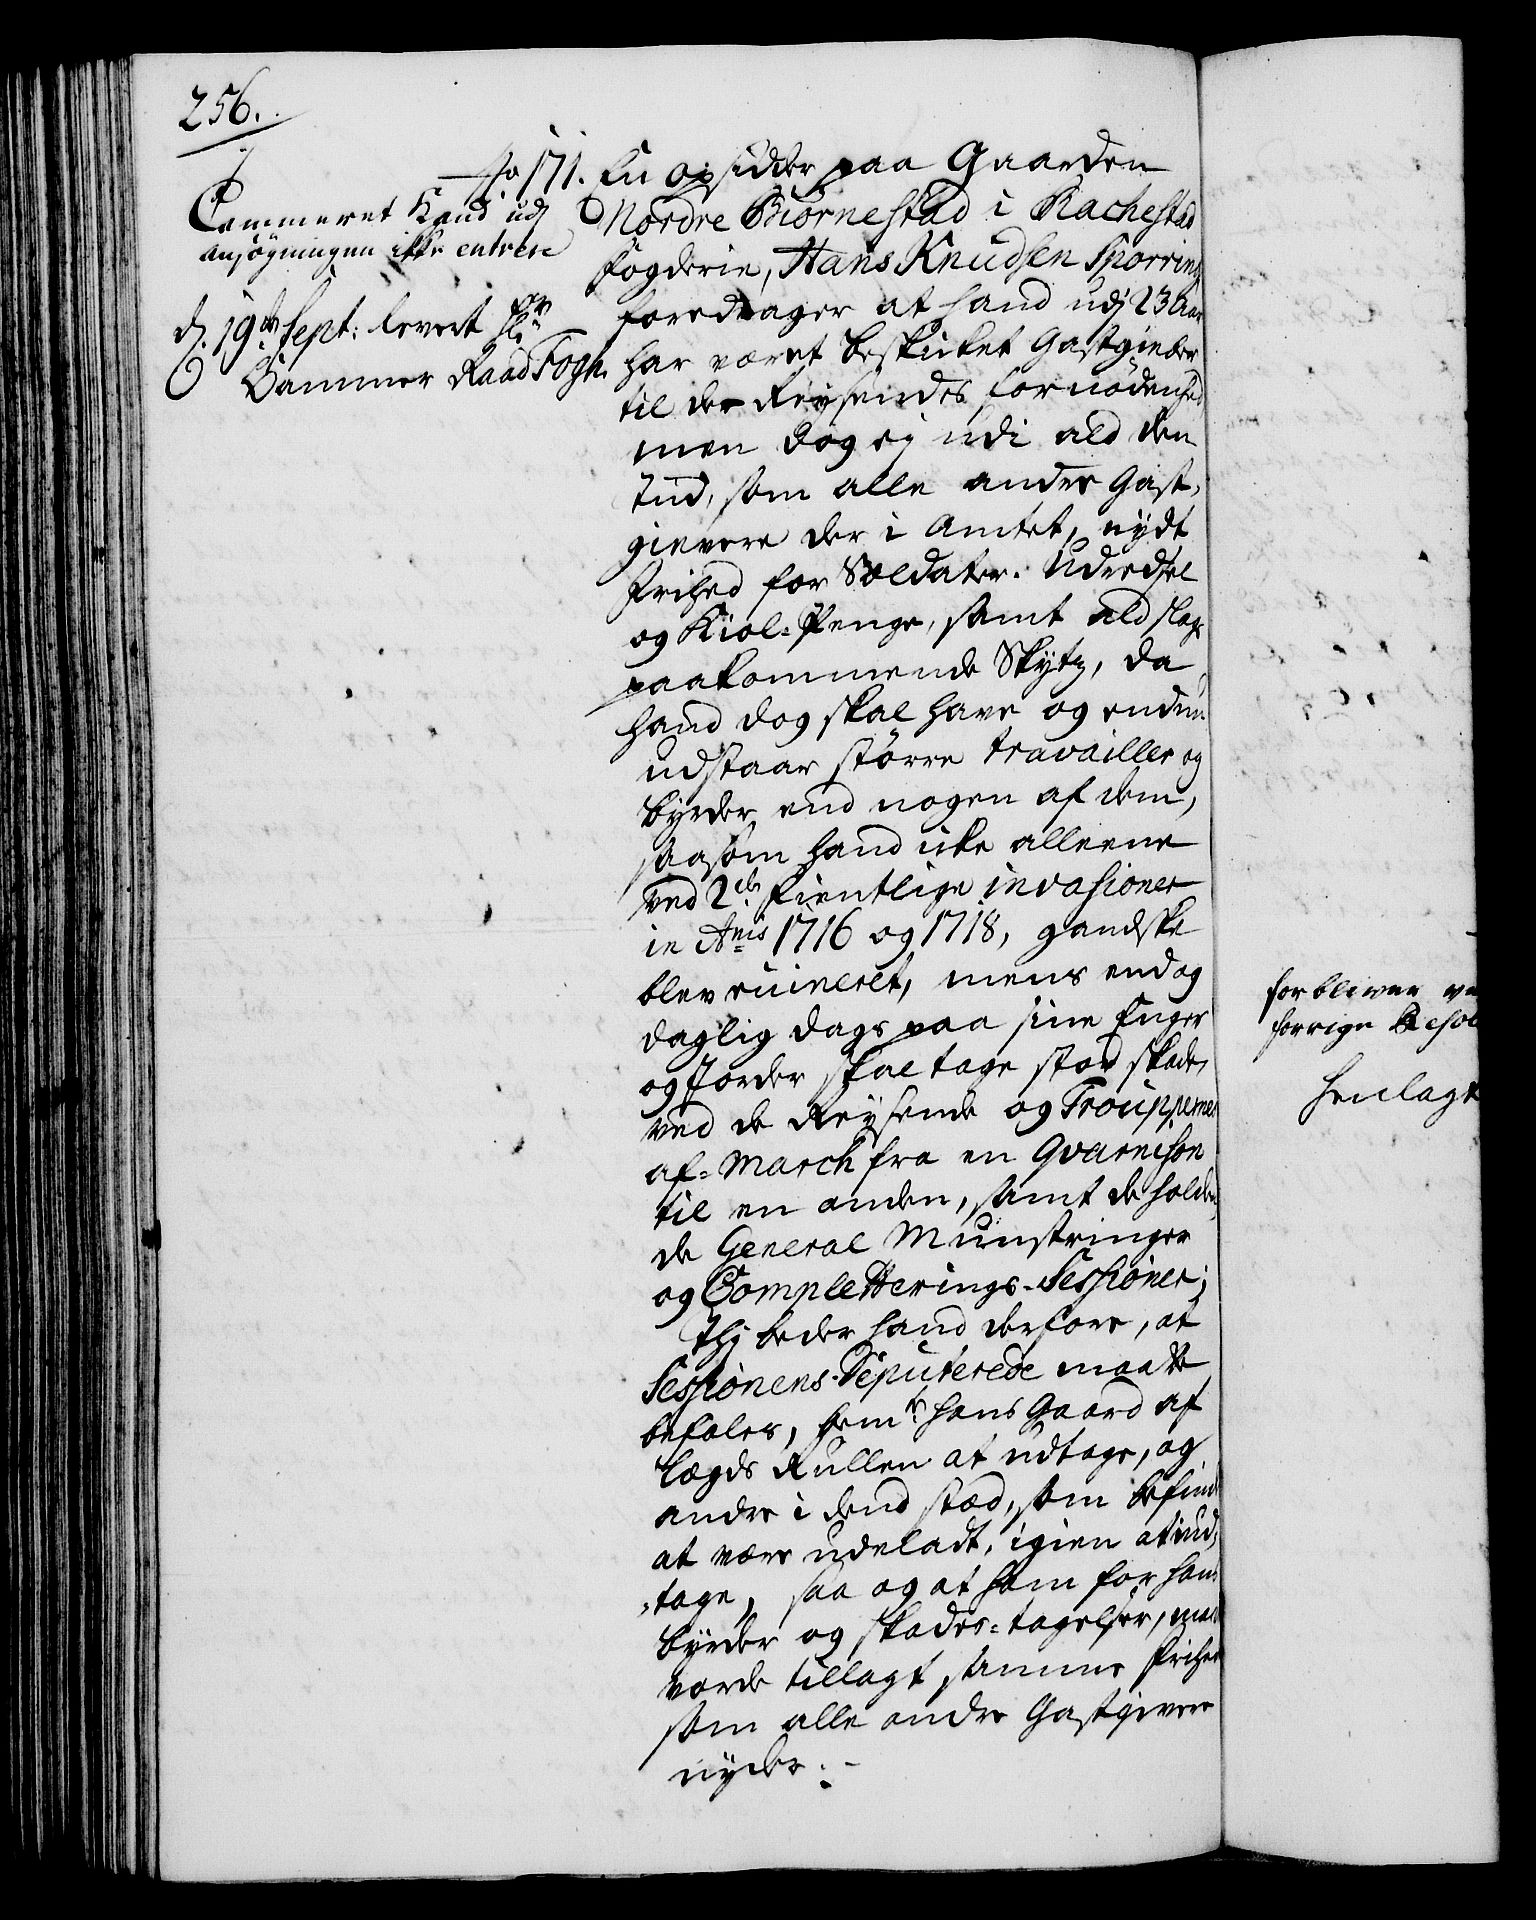 256.
No 171. En Opsidder paa Gaarden
Cammeret Kand udj
ansøgningen ikke entrere
d. 19de Sept: levert
Cammer Raad Fogh.
Nordre Biørnestad i Rachestad
Fogderie, Hans Knudsen Sporring
foredrager at hand udj 23 Aar
har været beskicket Gastgieber
til de Reysendes fornødenhed
men dog ej udi ald den
Tiid, som alle andre Gast,
gievere der i Amtet, nydt
Frihed for Soldater. Udredsel
og Kiol-Penge, samt ald slags
paakommende Skytz, da
hand dog skal have og endnu
udstaar større travailler og
byrder end nogen af dem,
saasom hand icke alleene
ved 2de. Fientlige invasioner
in Anis 1716 og 1718, gandske
blev ruineret, mens endog
daglig dags paa sine Enger
og Jorder skal tage stor skade,
ved de Reysende og Trouppernes
af-March fra en Qvarnison
til en anden, samt de holden,
de General Munstringer
og Completterings-Sessioner;
Thj beder hand derfore, at
Sessionens-Deputerede maatte
befales, hans Gaard af
Lægds Rullen at udtage, og
andre i dend stæd, som befindes
at være udeladt, igien at ind,
tage, saa og at ham for hans
byrder og skades-tagelser, maa
vorde tillagt samme Frihed
som alle andre Gastgivere
nyder.
forbliver ve
forrige Resol
Henlagt